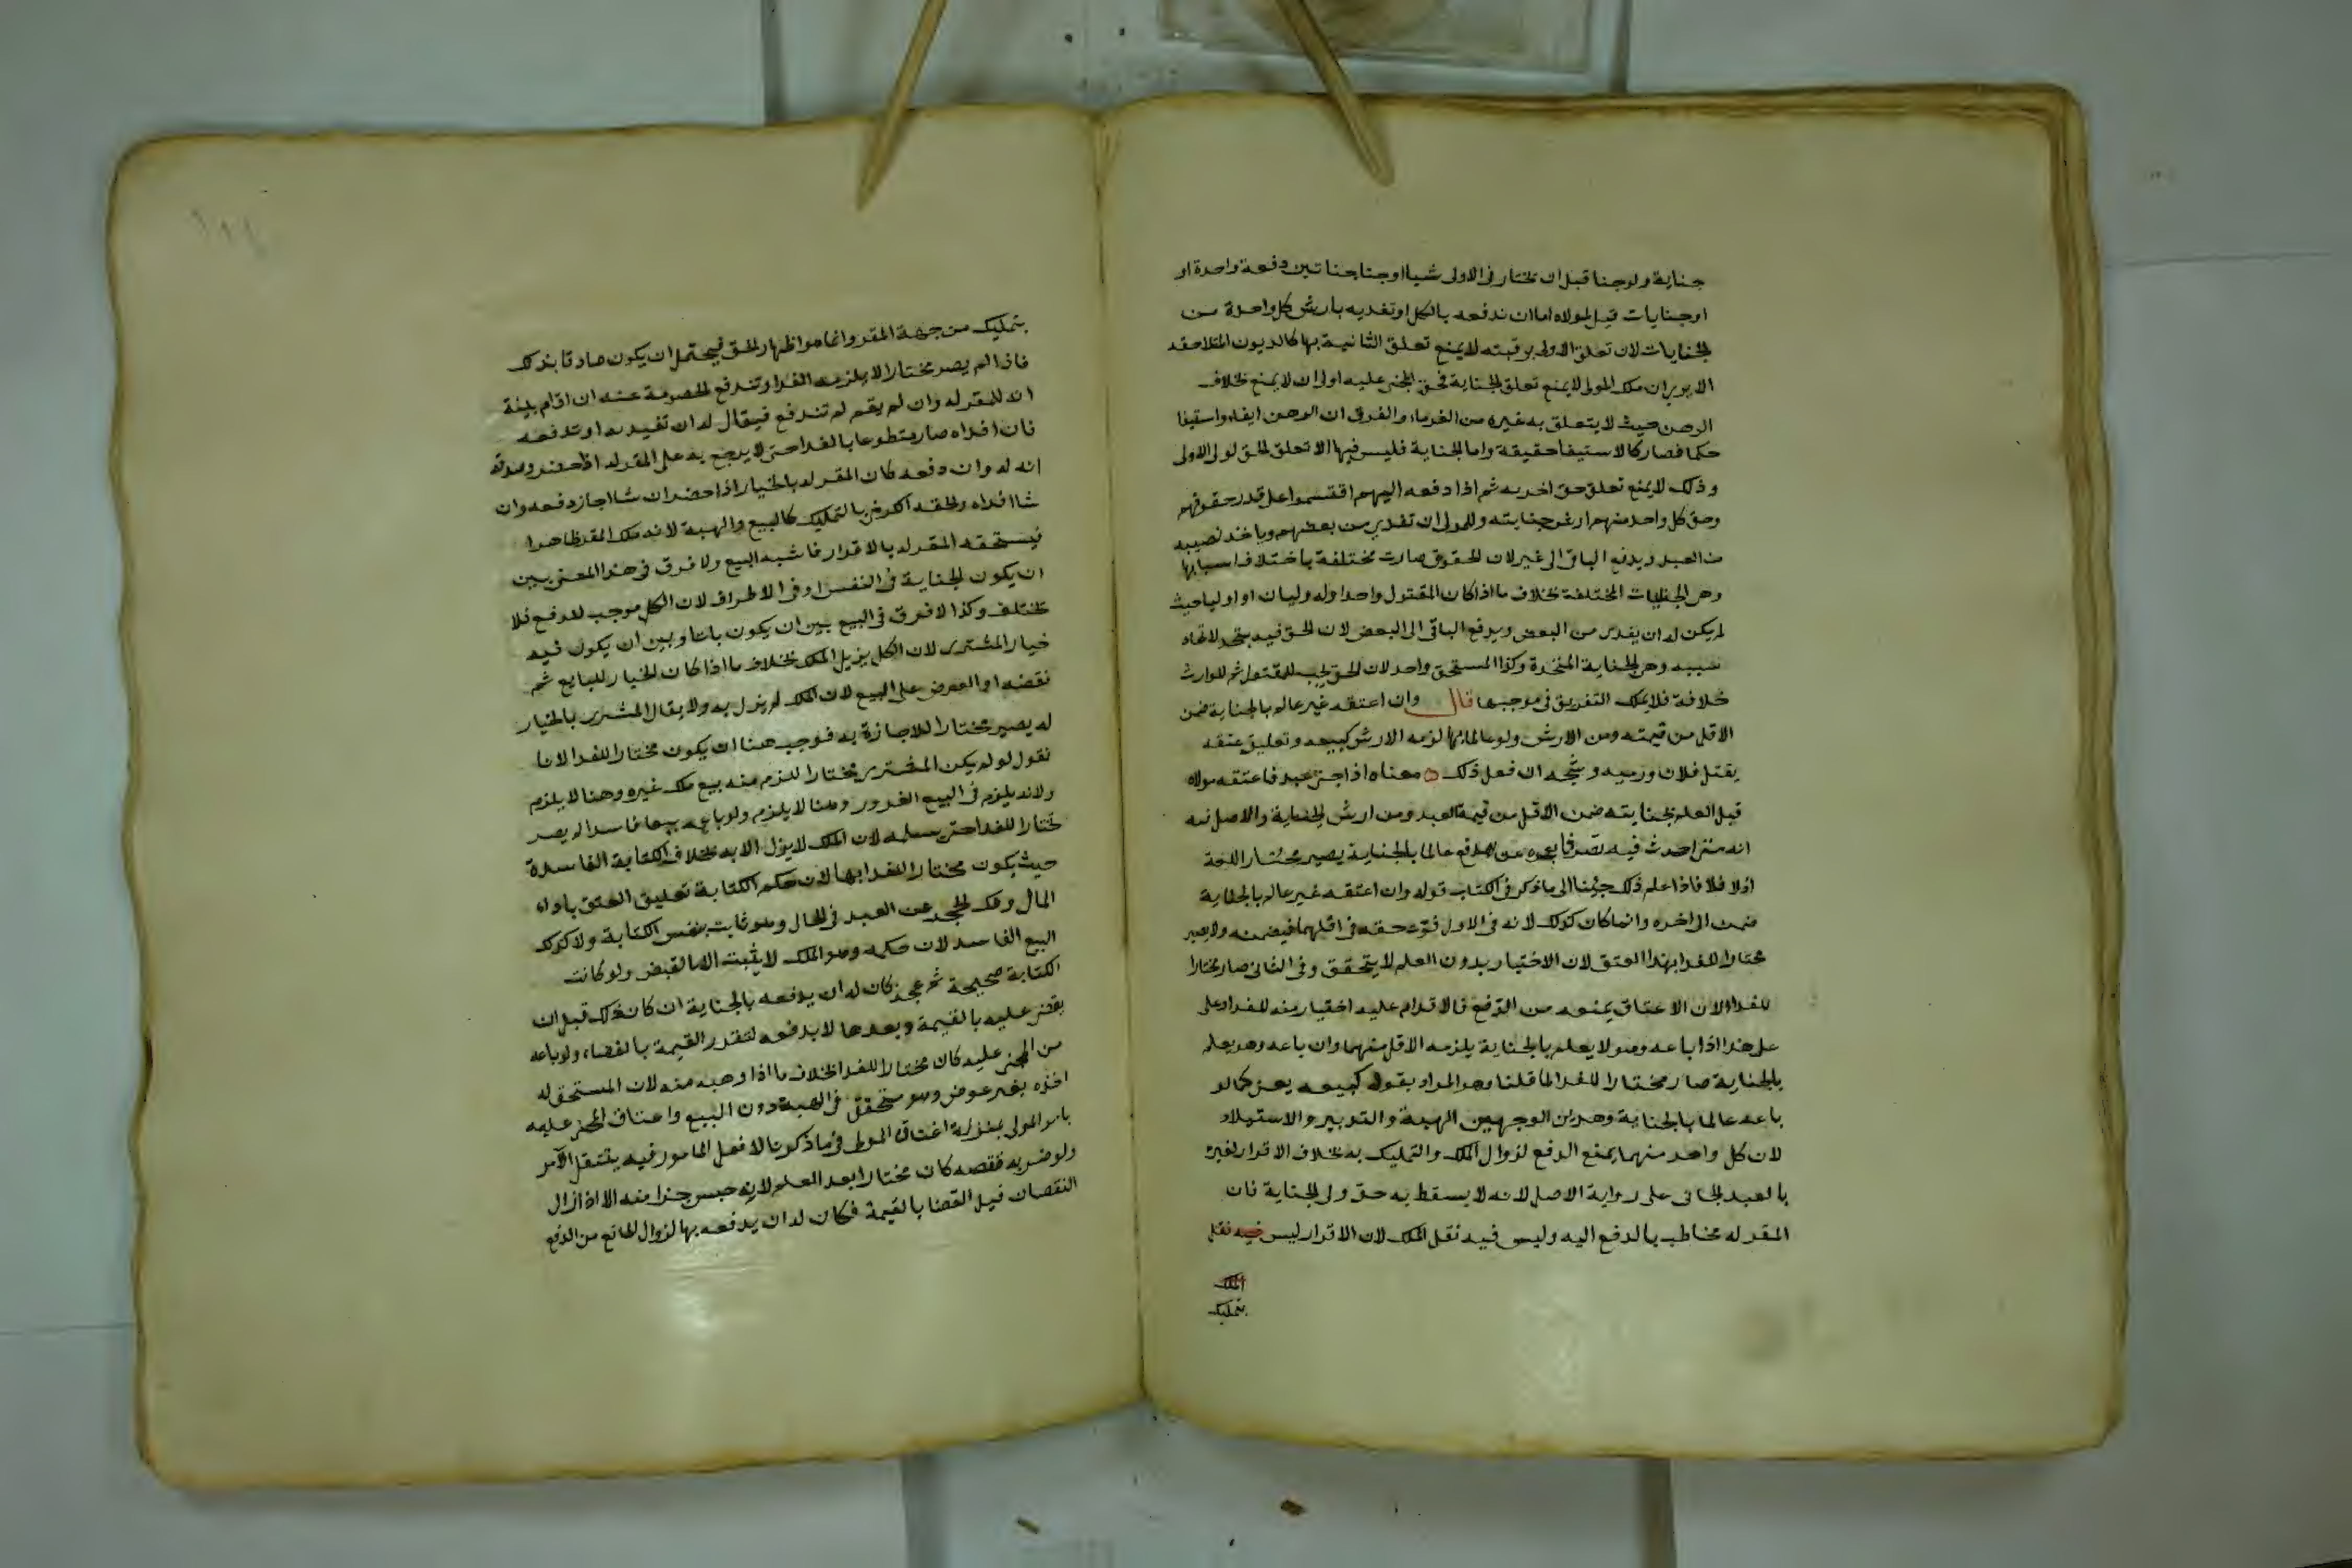 جناية ولو جنا قبل ان يختار في الاولى شيا او جنا جناتين دفعة واحدة او
او جنايات قيل لمولاه اما ان ندفعه بالكل او تفديه بارش كل واحدة من
الجنايات لان تعلق الاولى برقبته لا يمنع تعلق الثانية بها كالديون المتلاحقه
الا يري ان ملك المولى لا يمنع تعلق الجناية فحق المجنى عليه اولى ان لا يمنع بخلاف
الرهن حيث لا يتعلق به غيره من الغرماء والفرق ان الرهن ايفاء واستيفا
حكما فصار كالاستيفا حقيقة واما الجناية فليس فيها الا تعلق الحق لولى الاولى
وذلك لا يمنع تعلق حق اخر به ثم اذا دفعه اليهم اقتسموا على قدر حقوقهم
وحق كل واحد منهم ارش جنايته وللمولى ان تفدي من بعضهم وياخذ نصيبه
من العبد ويدفع الباقى الى غير لان الحقوق صارت مختلفة باختلاف اسبابها
وهي الجنايات المختلفة بخلاف ما اذا كان المقتول واحدا وله وليان او اوليا حيث
لم يكن له ان يفدى من البعض ويدفع الباقى الى البعض لان الحق فيه يتحد لاتحاد
سببه وهي الجناية المتحدة وكذا المستحق واحد لان الحق يجب للمقتول ثم للوارث
خلافة فلا يملك التفريق في موجبها قال وان اعتقه غير عالم بالجناية ضمن
الاقل من قيمته ومن الارش ولو عالما بها لزمه الارش كبيعه وتعليق عتقه
بقتل فلان ورميه وشجه ان فعل ذلك ه معناه اذا جنى عبد فاعتقه مولاه
قبل العلم بجنايته ضمن الاقل من قيمة العبد ومن ارش الجناية والاصل فيه
انه متى احدث فيه تصرفا يعجزه عن الدفع عالما بالجناية يصير مختارا للفدا
اولا فلا فاذا علم ذلك جئنا الى ما ذكر في الكتاب قوله وان اعتقه غير عالم بالجناية
ضمن الى اخره وانما كان كذلك لانه في الاول فوت حقه في اقلهما فيضمنه ولا يصير
مختارا للفدا بهذا العتق لان الاختيار بدون العلم لا يتحقق وفي الثانى صار مختارا
للفدا لان الاعتاق يمنعه من الدفع فالاقدام عليه اختيار منه للفدا وعلى
على هذا اذا باعه وهو لا يعلم بالجناية يلزمه الاقل منهما وان باعه وهو يعلم
بالجناية صار مختارا للفدا لما قلنا وهو المراد بقوله كبيعه يعنى كما لو
باعه عالما بالجناية وهذين الوجهين الهبة والتدبير والاستيلاد
لان كل واحد منهما يمنع الدفع لزوال الملك والتمليك به بخلاف الاقرار لغيره
بالعبد الجانى على رواية الاصل لانه لا يسقط به حق ولى الجناية فان
المقر له مخاطب بالدفع اليه وليس فيه نقل الملك لان الاقرار ليس فيه نقل
الملك
بتمليك
بتمليك من جهة المقر وانما هو اظهار الحق فيحتمل ان يكون صادقا بذلك
فاذا لم يصر مختارا لا يلزمه الفدا وتندفع الخصومة عنه ان اقام بينة
انه للمقر له وان لم يقم لم تندفع فيقال له ان تفديه او تدفعه
فان افداه صار متطوعا بالفدا حتى لا يرجع به على المقر له اذا حضر وصدقه
انه له وان دفعه كان المقر له بالخيار اذا حضر ان شا اجاز دفعه وان
شا افداه والحقه الكرخي بالتمليك كالبيع والهبة لانه ملك المقر ظاهرا
فيستحقه المقر له بالاقرار فاشبه البيع ولا فرق في هذا المعنى بين
ان يكون الجناية في النفس او في الاطراف لان الكل موجب للدفع فلا
تختلف وكذا لا فرق في البيع بين ان يكون باتا وبين ان يكون فيه
خيار المشترى لان الكل يزيل الملك بخلاف ما اذا كان الخيار للبايع ثم
نقضه او العرض على البيع لان الملك لم يزل به ولا يقال المشترى بالخيار
له يصير مختارا للاجازة به فوجب هنا ان يكون مختارا للفدا لانا
نقول لو لم يكن المشترى مختارا للزم منه بيع ملك غيره وهنا لا يلزم
ولانه يلزم في البيع الغرور وهنا لا يلزم ولو باعه بيعا فاسدا لم يصر
مختارا للفدا حتى يسلمه لان الملك لا يزول الا به بخلاف الكتابة الفاسدة
حيث يكون مختارا للفدا بها لان حكم الكتابة تعليق العتق باداء
المال وفك الحجر عن العبد في الحال وهو ثابت بنفس الكتابة ولا كذلك
البيع الفاسد لان حكمه وهو الملك لا يثبت الا بالقبض ولو كانت
الكتابة صحيحة ثم عجز كان له ان يدفعه بالجناية ان كان ذلك قبل ان
يقضى عليه بالقيمة وبعدها لا يدفعه لتقدر القيمة بالقضاء ولو باعه
من المجنى عليه كان مختارا للفدا بخلاف ما اذا وهبه منه لان المستحق له
اخذه بغير عوض وهو متحقق في الهبة دون البيع واعتاق المجنى عليه
بامر المولى بمنزلة اعتاق المولى فيما ذكرنا لان فعل المامور فيه ينتقل للآمر
ولو ضربه فنقصه كان مختارا بعد العلم لانه حبس جزا منه الا اذا زال
النقصان قبل القضا بالقيمة فكان له ان يدفعه بها لزوال المانع من الدفع